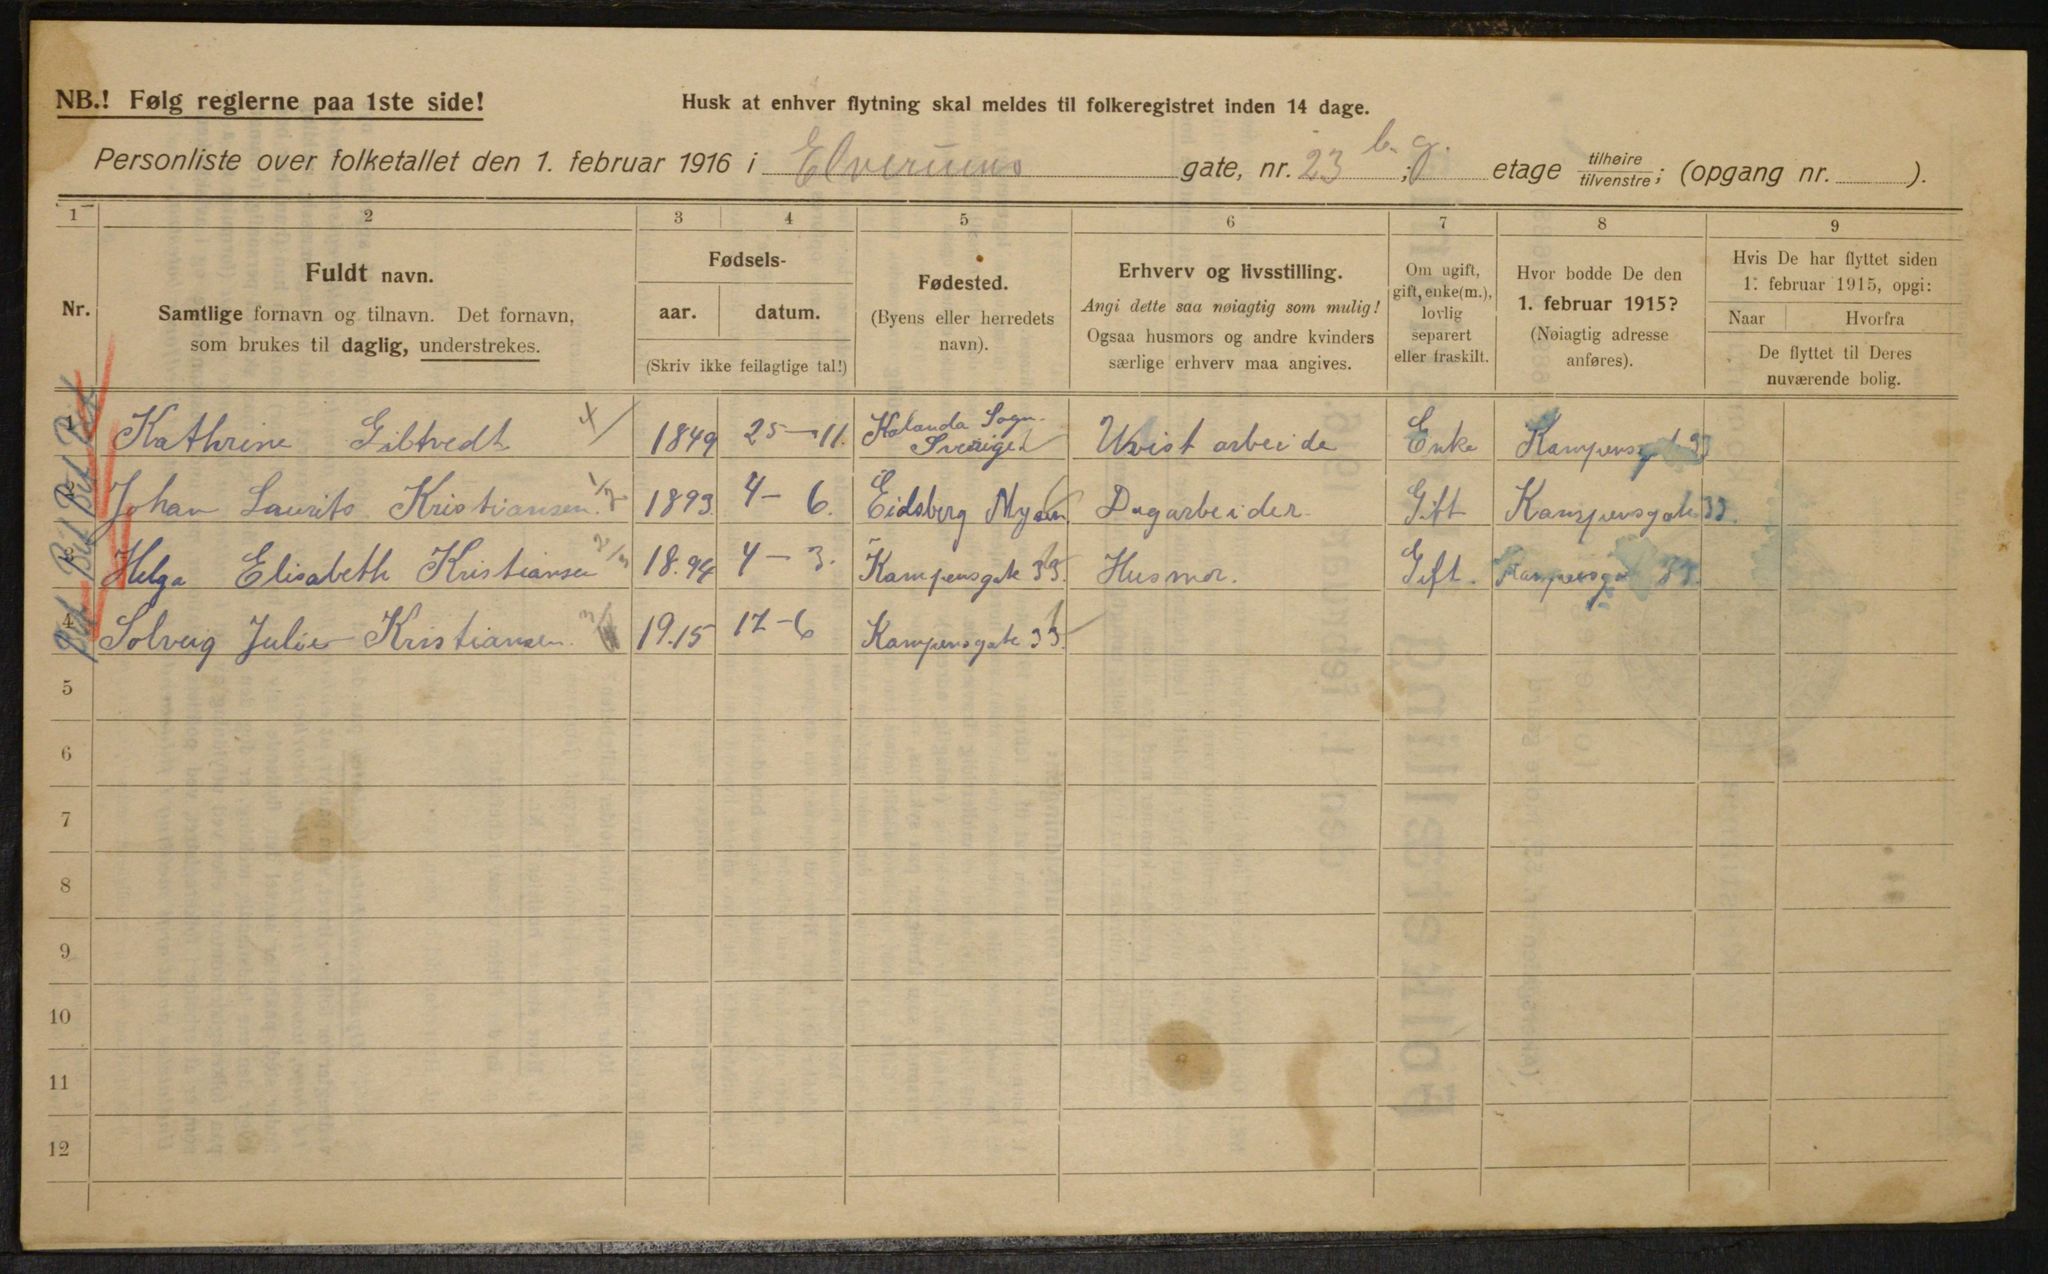 NB.! Følg reglerne paa 1ste side! Husk at enhver flytning skal meldes til folkeregistret inden 14 dage.
Personliste over folketallet den 1. februar 1916 i Elverums gate, nr. 23 b.g. ; etage tilhøire/tilvenstre; (opgang nr. ).
1 2 3 4 5 6 7 8 9
Nr.
Fuldt navn.
Samtlige fornavn og tilnavn. Det fornavn,
som brukes til daglig, understrekes.
Fødsels-
aar. datum.
(Skriv ikke feilagtige tal!)
Fødested.
(Byens eller herredets
navn).
Erhverv og livsstilling.
Angi dette saa nøiagtig som mulig!
Ogsaa husmors og andre kvinders
særlige erhverv maa angives.
Om ugift,
gift, enke(m.),
lovlig
separert
eller fraskilt.
Hvor bodde De den
1. februar 1915?
(Nøiagtig adresse
anføres).
Hvis De har flyttet siden
1. februar 1915, opgi:
Naar Hvorfra
De flyttet til Deres
nuværende bolig.
1 Kathrine 1849 25-11. Sogn Sverige Uvist arbeide Enke Kampensgate 33
Johan Laurits Kristiansen 1893 4-6. Eidsberg Mysen Dagarbeider Gift Kampensgate 33.
Helga Elisabeth Kristiansen 18.94 4-3. Kampensgate 33. Husmor. Gift. Kampensgate 33.
4 Solveig Julie Kristiansen 19.15 17-6 Kampensgate 33.
5
6
7
8
9
10
11
12